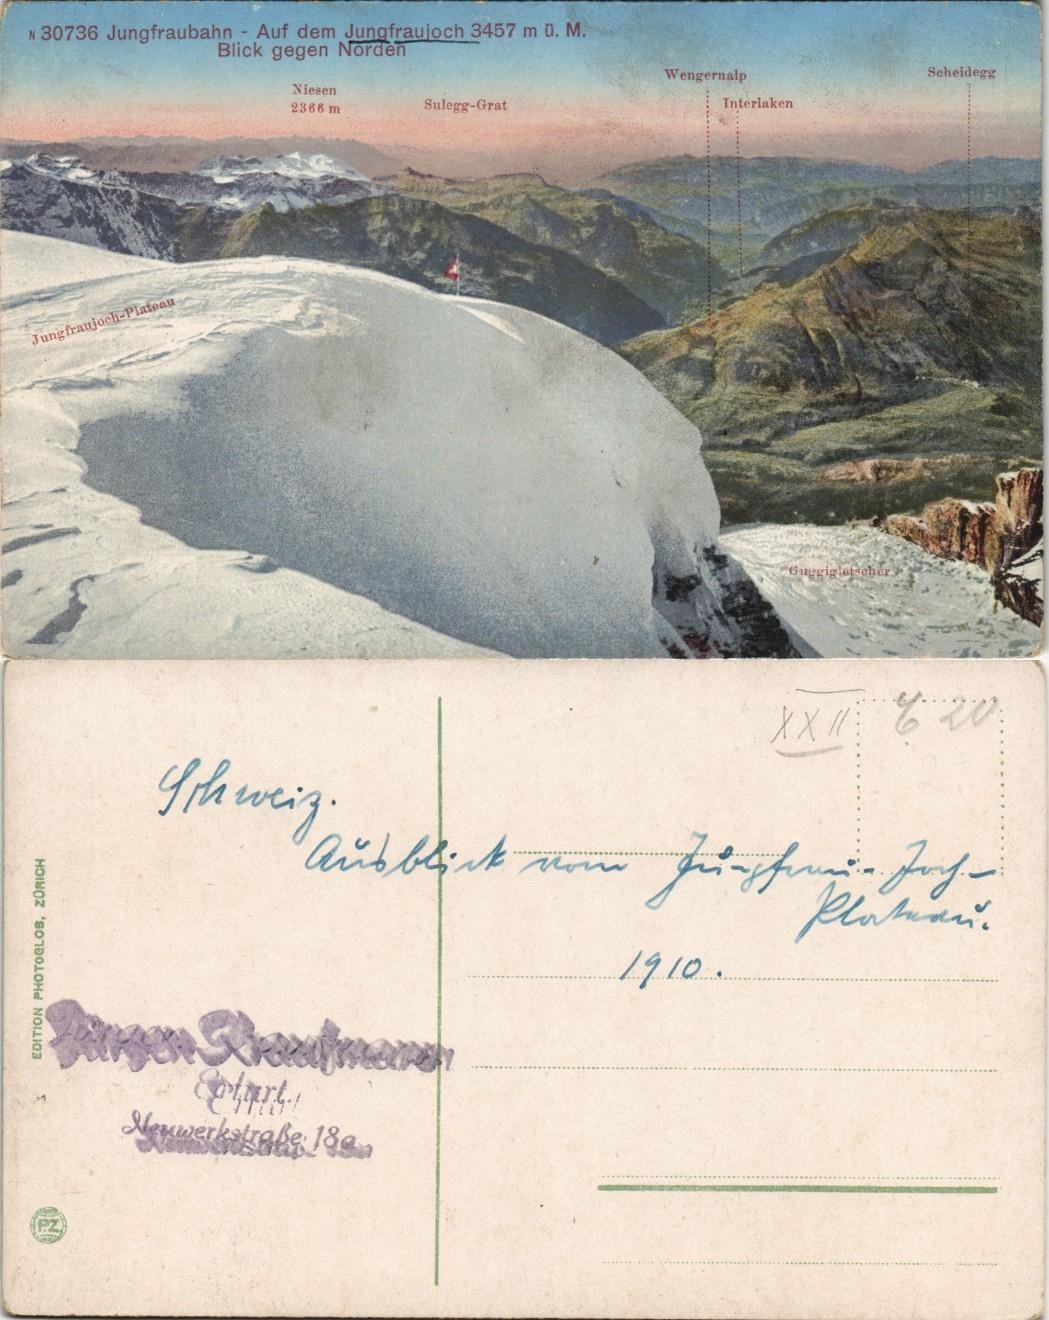 N 30736 Jungfraubahn - Auf dem Jungfraujoch 3457 m ü. M.
Blick gegen Norden
Wengernalp
Scheidegg
Niesen
2366 m
Sulegg-Grat
Interlaken
Jungfraujoch-Plateau
Guggigletscher
XXII
20
Schweiz.
Ausblick vom Jungfrau-Joch-
Plateau.
1910.
EDITION PHOTOGLOB, ZÜRICH
Jürgen Kraufmann
Erfurt
Neuwerkstraße 18a
PZ